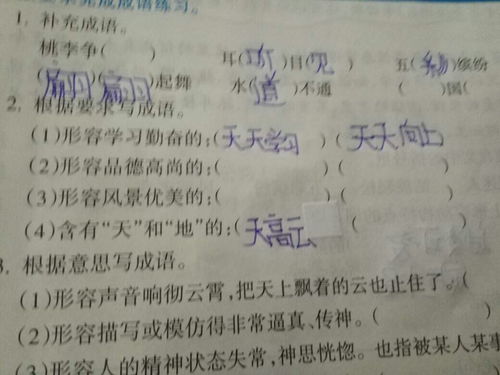 完成成语练习。
1. 补充成语。
桃李争( ) 耳( )目(见) 五( )缤纷
( )( )起舞 水(道)不通 ( )国(
2. 根据要求写成语。
(1)形容学习勤奋的:(天天学习)(天天向上)
(2)形容品德高尚的:( )( )
(3)形容风景优美的:( )( )
(4)含有“天”和“地”的:(天高云 )(
3. 根据意思写成语。
(1)形容声音响彻云霄,把天上飘着的云也止住了。(
(2)形容描写或模仿得非常逼真、传神。(
(3)形容人的精神状态失常,神思恍惚。也指被某人某事